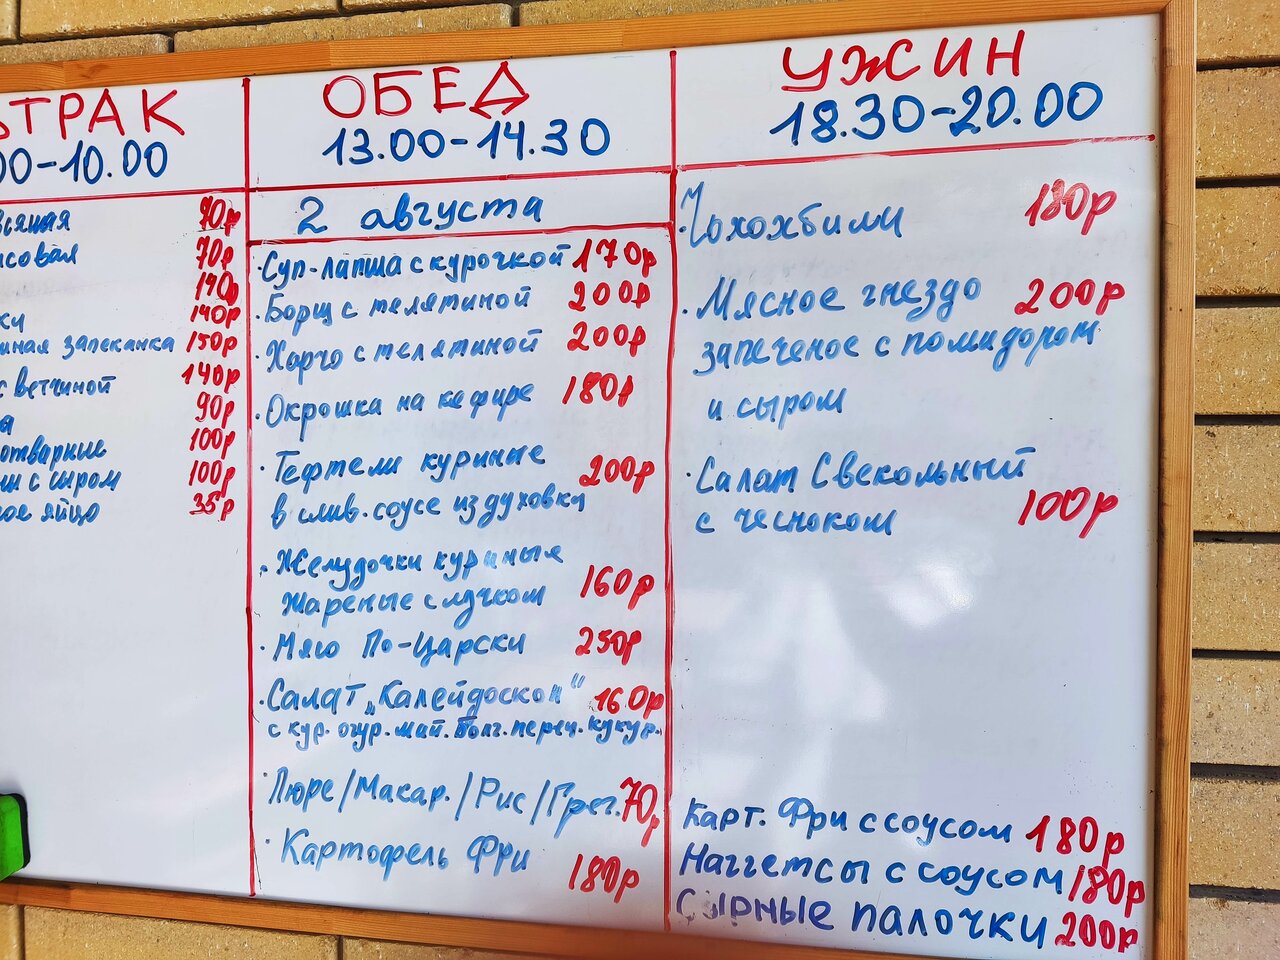 ВТРАК
00-10.00
всяная 70р
исовая 70р
190р
ки 140р
иная запеканка 150р
с ветчиной 140р
а 90р
отварные 100р
чи с сыром 100р
ное яйцо 35р
ОБЕД
13.00-14.30
2 августа
·Суп-лапша с курочкой 170р
·Борщ с телятиной 200р
·Харчо с телятиной 200р
·Окрошка на кефире 180р
·Тефтели куриные 200р
в слив. соусе из духовки
·Желудочки куриные
жареные с лучком 160р
·Мясо По-Царски 250р
·Салат „Калейдоскоп" 160р
с кур. огур. май. Болг. переч. кукур.
·Пюре/Макар./Рис/Греч. 70р
·Картофель Фри 180р
УЖИН
18.30-20.00
·Чохохбили 180р
·Мясное гнездо 200р
запеченое с помидором
и сыром
·Салат Свекольный
с чесноком 100р
Карт. Фри с соусом 180р
Наггетсы с соусом 180р
Сырные палочки 200р